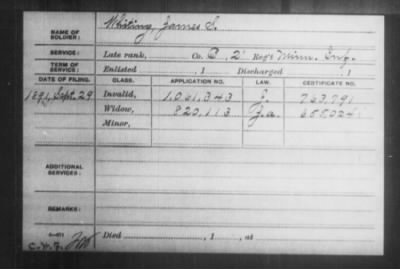 NAME OF SOLDIER: Whiting, James S.
SERVICE: Late rank, Co. B, 2" Reg't Minn. Inf.
TERM OF SERVICE: Enlisted , 1 Discharged , 1
DATE OF FILING. CLASS. APPLICATION NO. LAW. CERTIFICATE NO.
1891, Sept. 29 Invalid, 1,061,343 763,791
Widow, 820,113 658024
Minor,
ADDITIONAL SERVICES:
REMARKS:
Died , 1 , at